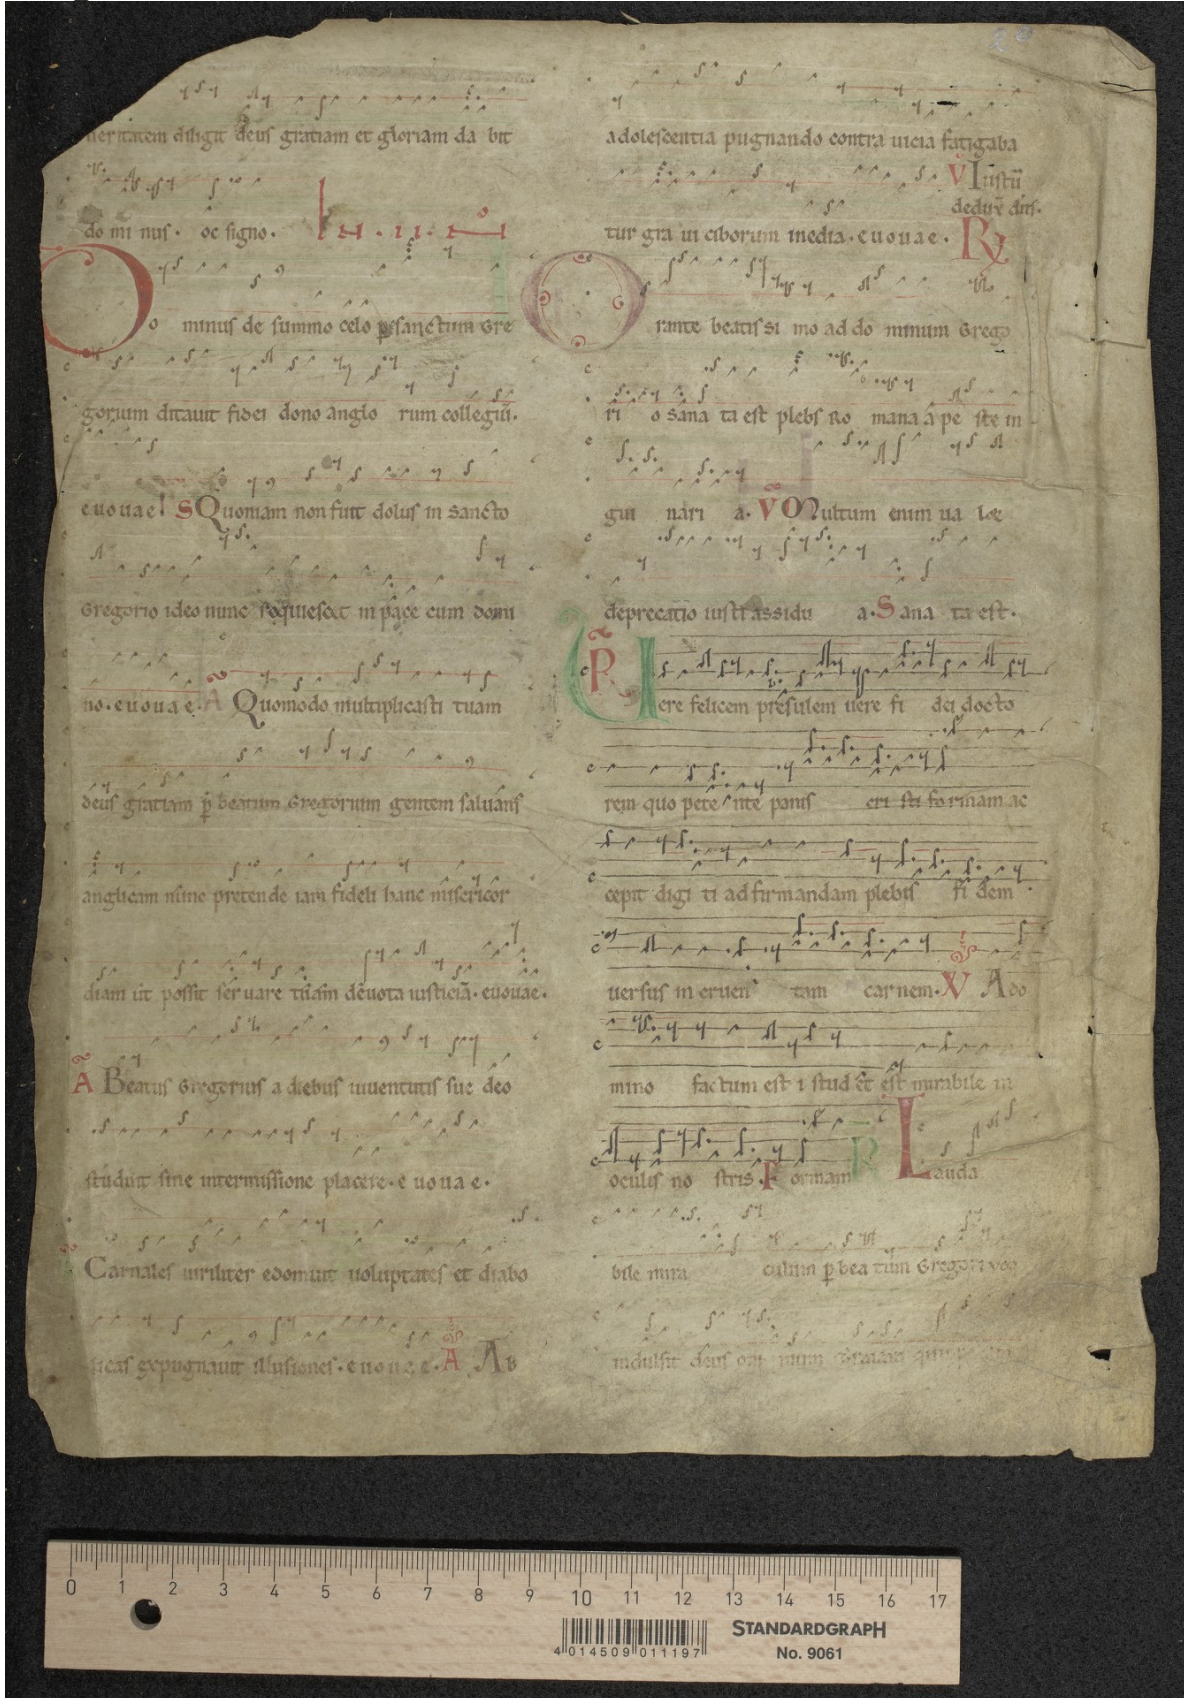 ueritatem diligit deus gratiam et gloriam da bit
do mi nus. oc signo. In .ii. N
Do minus de summo celo p sanctum Gre
gorium ditauit fidei dono anglo rum collegiū.
euouae! S Quoniam non fuit dolus in sancto
Gregorio ideo nunc requiescit in pace cum domi
no. euouae. A Quomodo multiplicasti tuam
deus gratiam p beatum Gregorium gentem saluans
anglicam nunc pretende iam fideli hanc misericor
diam ut possit seruare tuam deuota iusticiā. euouae.
A Beatus Gregorius a diebus iuuentutis sue deo
studuit sine intermissione placere. e uouae.
Carnales uiriliter edomuit uoluptates et diabo
licas expugnauit illusiones. euouae. A Ab
adolescentia pugnando contra uicia fatigaba
V Iustū
deduxͭ dn̄s.
tur gra ui ciborum inedia. euouae. R
Orante beatissi mo ad do minum Grego
ri o sana ta est plebs Ro mana a pe ste in
gui nari a. V Multum enim ua let
deprecatio iusti assidu a. Sana ta est.
R Uere felicem presulem uere fi dei docto
rem quo petente panis cri sti formam ac
cepit digi ti ad firmandam plebis fi dem
uersus in cruen tam carnem. V A do
mino factum est i stud et est mirabile in
oculis no stris. Formam R Lauda
bile mira culum p bea tum Gregori
indulsit deus om nium
20
0 1 2 3 4 5 6 7 8 9 10 11 12 13 14 15 16 17
STANDARDGRAPH
4 014509 011197
No. 9061